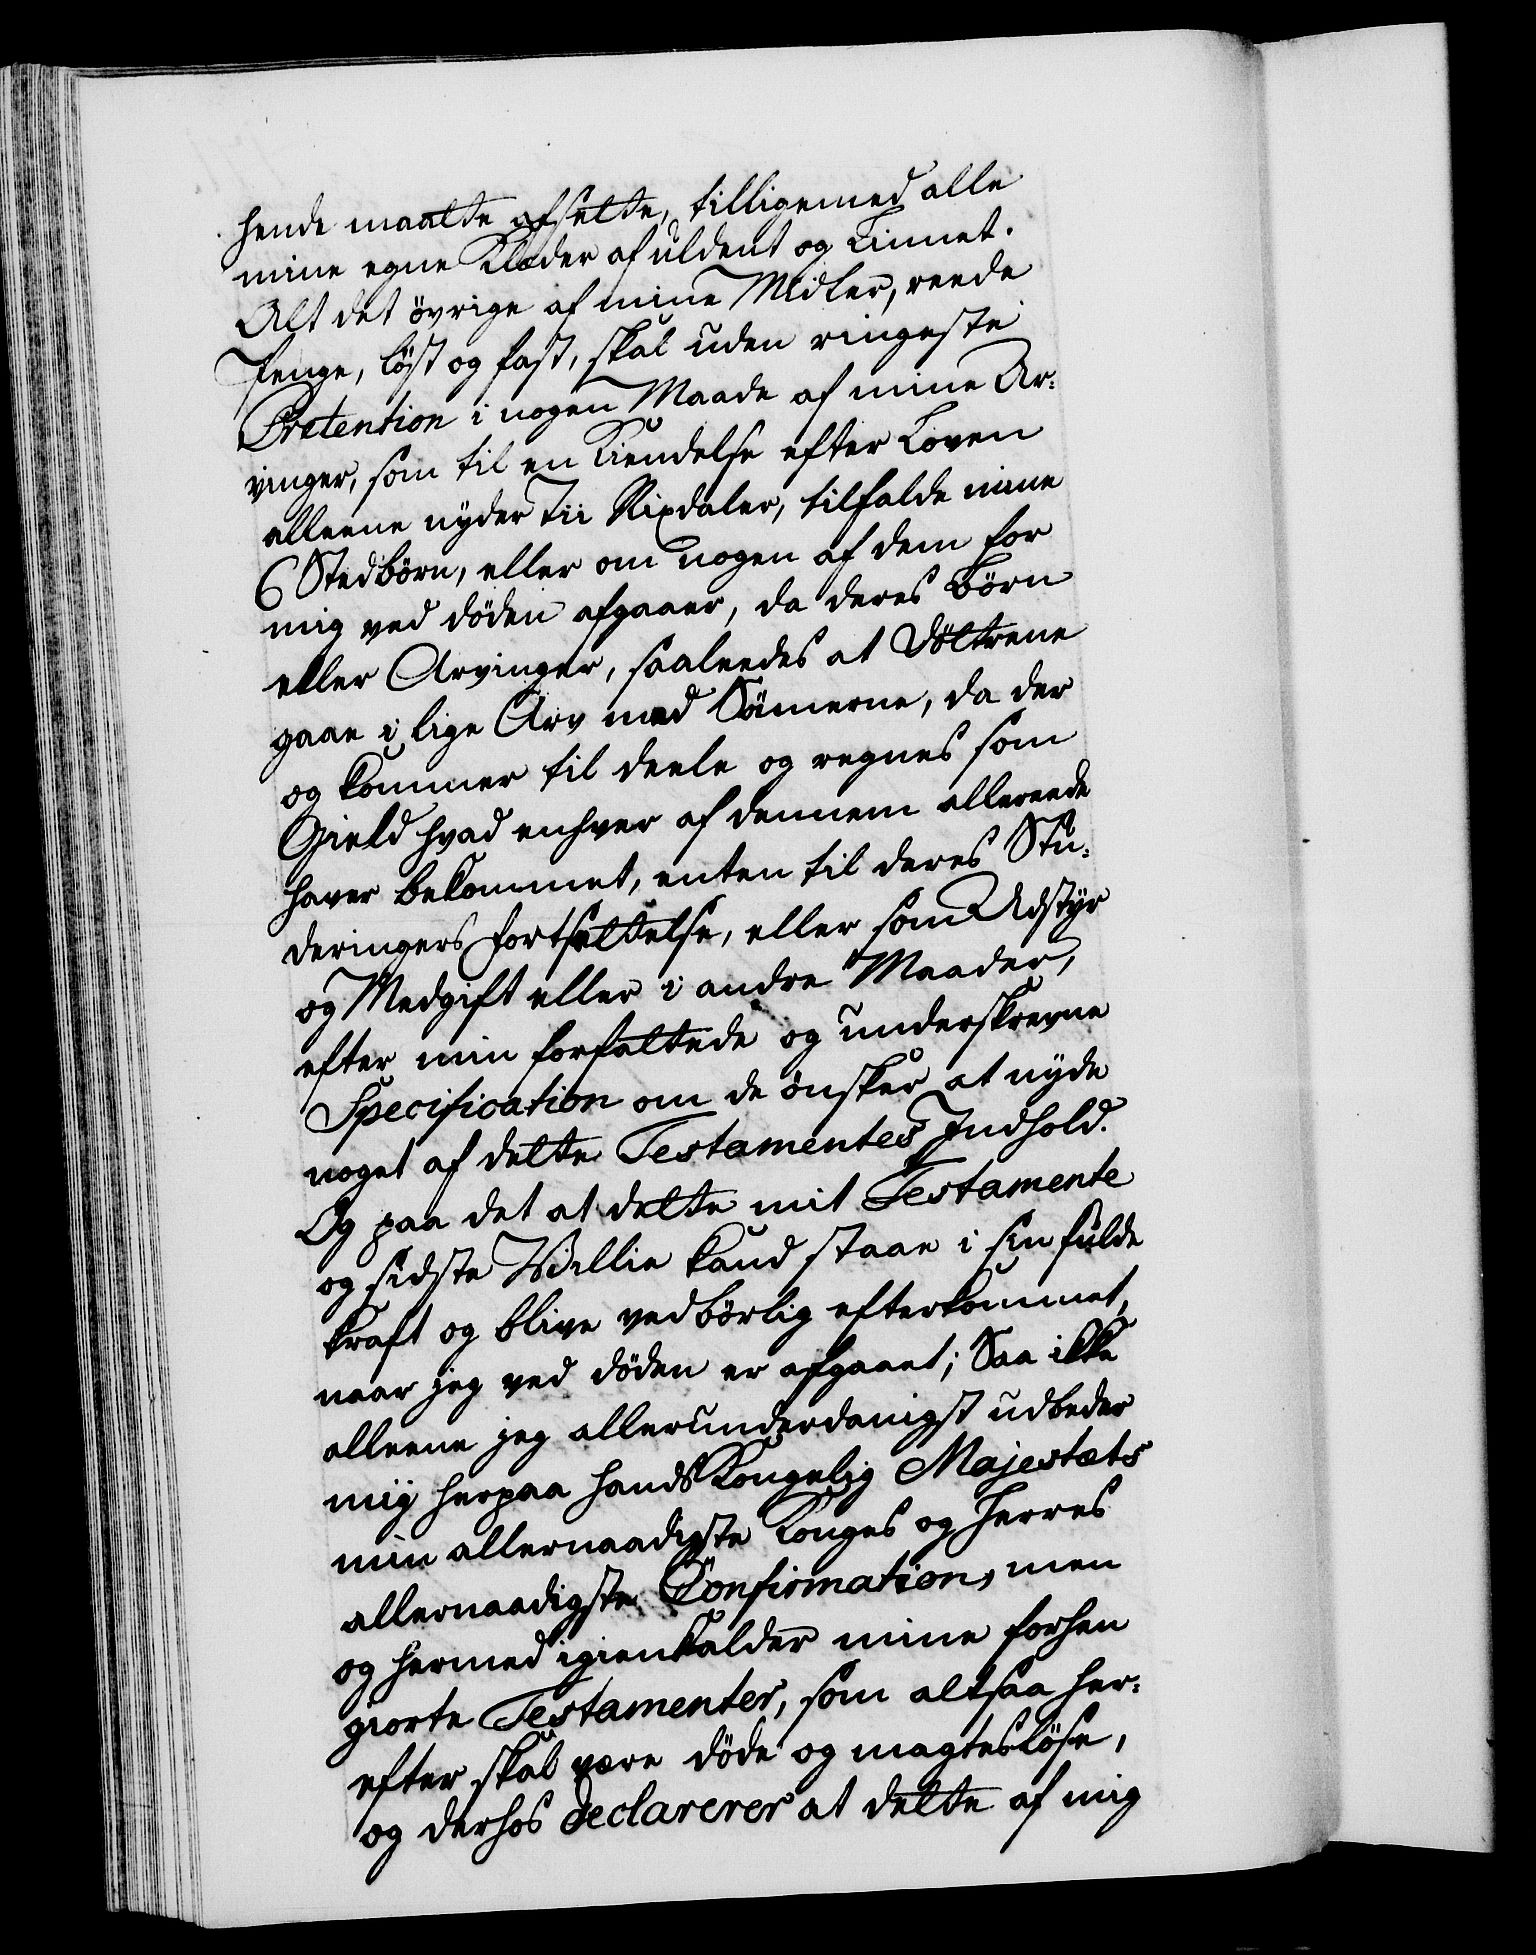 hende maatte afsette, tilligemed alle
mine egne Klæder af uldent og Linnet.
Alt det övrige af mine Midler, reede
Penge, löst og fast, skal uden ringeste
Prætention i nogen Maade af mine Ar¬
vinger, som til en Kiendelse efter Loven
alleene nyder Tii Rixdaler, tilfalde mine
6 Stedbörn, eller om nogen af dem for
mig ved döden afgaaer, da deres Börn
eller Arvinger, saaleedes at Döttrene
gaae i lige Arv med Sönnerne, da der
og kommer til deele og regnes som
Gield hvad enhver af dennem allereede
haver bekommet, enten til deres Stu¬
deringers fortsættelse, eller som Udstyr
og Medgift eller i andre Maader,
efter min forfattede og underskrevne
Specification om de önsker at nyde
noget af dette Testamentes Indhold.
Og paa det at dette mit Testamente
og sidste Villie kand staae i sin fulde
kraft og blive vedbörlig efterkommet,
naar jeg ved döden er afgaaet; Saa ikke
alleene jeg allerunderdanigst udbeder
mig herpaa hands Kongelig Majestæts
min allernaadigste Konges og Herres
allernaadigste Confirmation, men
og hermed igienkalder mine forhen
giorte Testamenter, som altsaa her¬
efter skal være döde og magteslöse,
og derhos declarerer at dette af mig